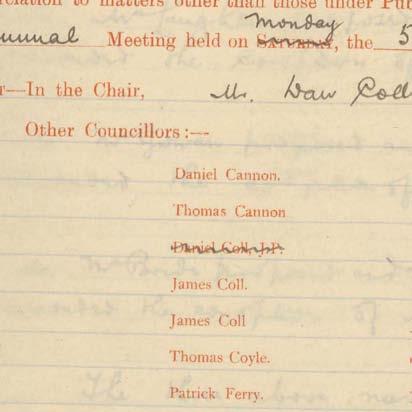 relation to matters other than those under Pub
Monday
nnual Meeting held on Saturday, the 5
r—In the Chair, Mr. Dan Coll
Other Councillors :—
Daniel Cannon.
Thomas Cannon
Daniel Coll, J.P.
James Coll.
James Coll
Thomas Coyle.
Patrick Ferry.